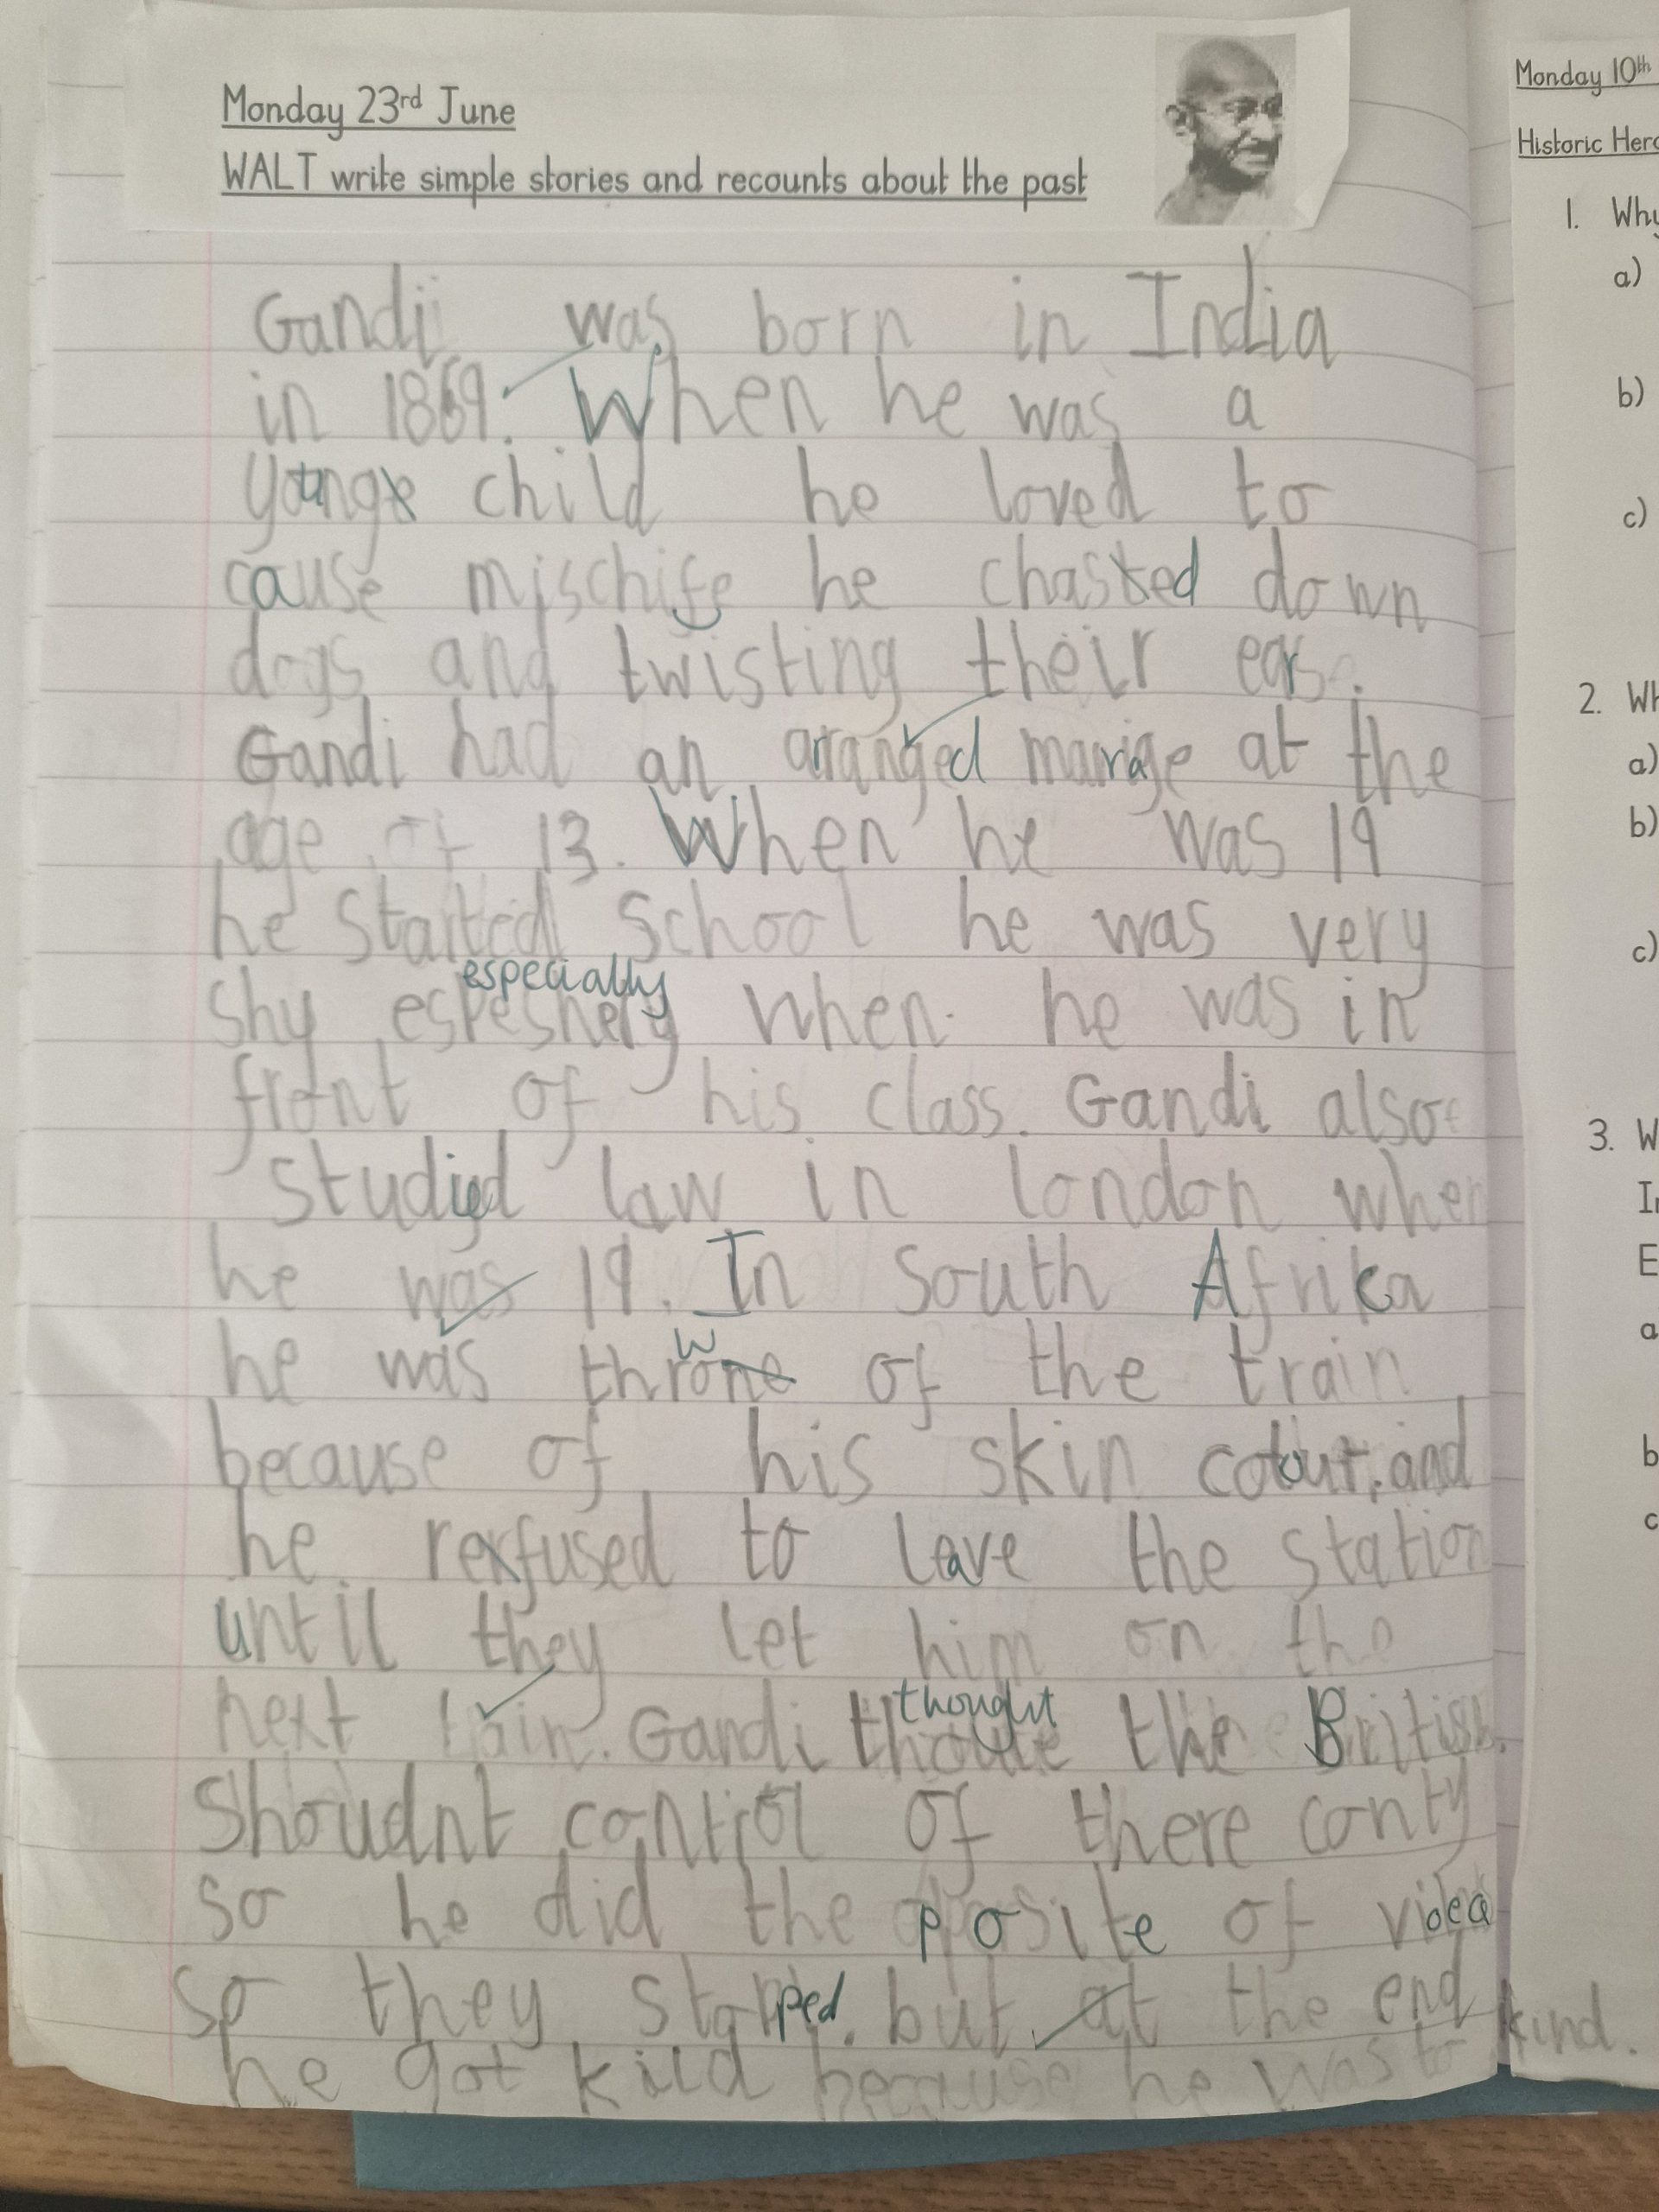 Monday 23rd June
WALT write simple stories and recounts about the past
Gandii was born in India
in 1869. When he was a
young child he loved to
cause mischife he chased down
dogs and twisting their ears.
Gandi had an arranged marriage at the
age of 13. When he was 19
he started School he was very
especially
shy espeshely when he was in
front of his class. Gandi also
studied law in london when
he was 19. In South Africa
w
he was throne of the train
because of his skin colour, and
he refused to leave the station
until they let him on the
thought
next train. Gandi the British
Shoudnt control of there conty
so he did the opposite of
so they stopped. but at the end
he got kild because he was to kind.
Monday 10th
Historic Hero
1. Why
a)
b)
c)
2. Wh
a)
b)
c)
3. W
In
E
a
b
c